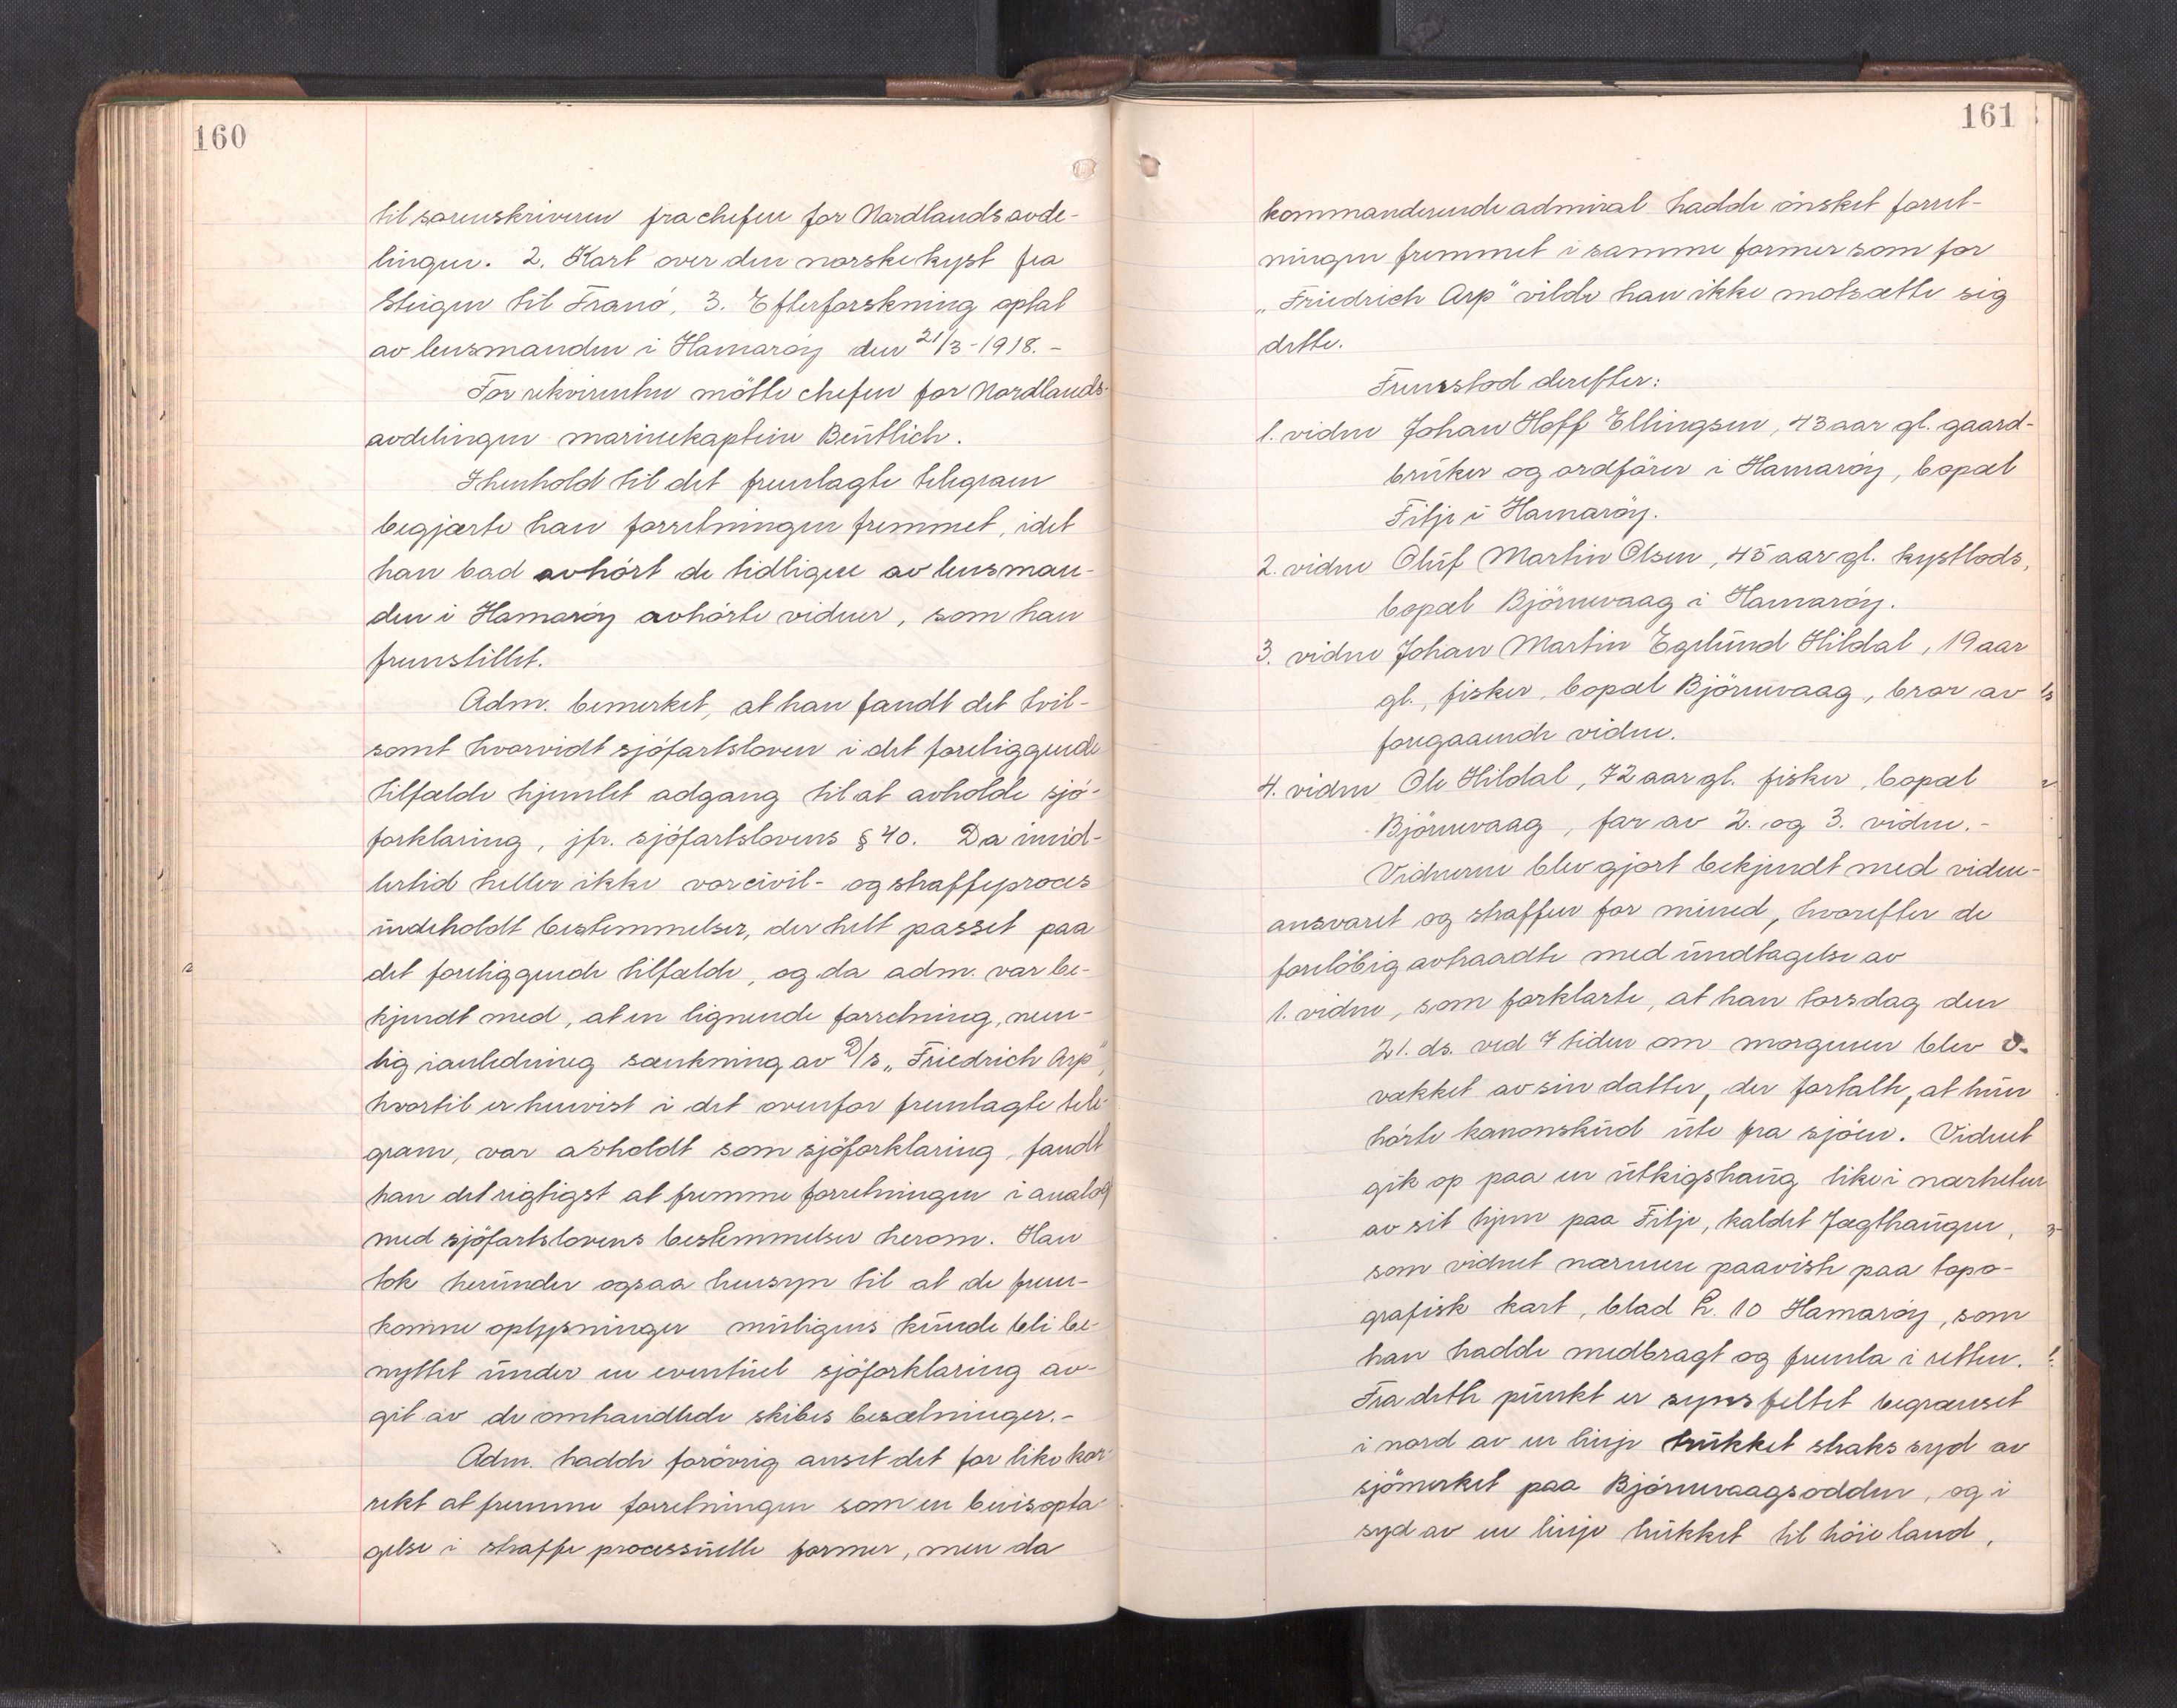 160
til sorenskriveren fra chefen for Nordlands avde-
lingen. 2. Kart over den norske kyst fra
Steigen til Tranö, 3. Efterforskning optat
av lensmanden i Hamaröy den 21/3-1918.-
For rekvirenten mötte chefen for Nordlands-
avdelingen marinekaptein Bentlich.
I henhold til det fremlagte telegram
begjærte han forretningen fremmet, idet
han bad avhört de tidligere av lensman-
den i Hamaröy avhörte vidner, som han
fremstillet.
Adm. bemerket, at han fandt det tvil-
somt hvorvidt sjöfartsloven i det foreliggende
tilfælde hjemlet adgang til at avholde sjö-
forklaring, jfr. sjöfartslovens § 40. Da imid-
lertid heller ikke vor civil- og straffeproces
indeholdt bestemmelser, der helt passet paa
det foreliggende tilfælde, og da adm. var be-
kjendt med, at en lignende forretning, nem-
lig i anledning sænkning av D/s „Friedrich Arp",
hvortil er henvist i det ovenfor fremlagte tele-
gram, var avholdt som sjöforklaring, fandt
han det rigtigst at fremme forretningen i analog
med sjöfartslovens bestemmelser herom. Han
tok herunder ogsaa hensyn til at de frem-
komne oplysninger muligens kunde bli be-
nyttet under en eventuel sjöforklaring av-
git av de omhandlede skibes besætninger.-
Adm. hadde forövrig anset det for like kor-
rekt at fremme forretningen som en bevisopta-
gelse i straffe processuelle former, men da
161
kommanderende admiral hadde önsket forret-
ningen fremmet i samme former som for
„Friedrich Arp" vilde han ikke motsætte sig
dette.
Fremstod derefter:
1. vidne Johan Hoff Ellingsen, 43 aar gl. gaard-
bruker og ordförer i Hamaröy, bopæl
Filje i Hamaröy.
2. vidne Oluf Martin Olsen, 45 aar gl. kystlods,
bopæl Björnevaag i Hamaröy.
3. vidne Johan Martin Egelund Hildal, 19 aar
gl., fisker, bopæl Björnevaag, bror av
foregaaende vidne.
4. vidne Ole Hildal, 72 aar gl. fisker, bopæl
Björnevaag, far av 2. og 3. vidne.-
Vidnerne blev gjort bekjendt med vidne-
ansvaret og straffen for mened, hvorefter de
forelöbig avtraadte med undtagelse av
1. vidne, som forklarte, at han torsdag den
21. ds. ved 7 tiden om morgenen blev
vækket av sin datter, der fortalte, at hun
hörte kanonskud ute fra sjöen. Vidnet
gik op paa en utkigshaug like i nærheten
av sit hjem paa Filje, kaldet Jægthaugen,
som vidnet nærmere paaviste paa topo-
grafisk kart, blad L. 10 Hamaröy, som
han hadde medbragt og fremla i retten.
Fra dette punkt er synsfeltet begrænset
i nord av en linje trukket straks syd av
sjömerket paa Björnevaagsodden, og i
syd av en linje trukket til höie land,